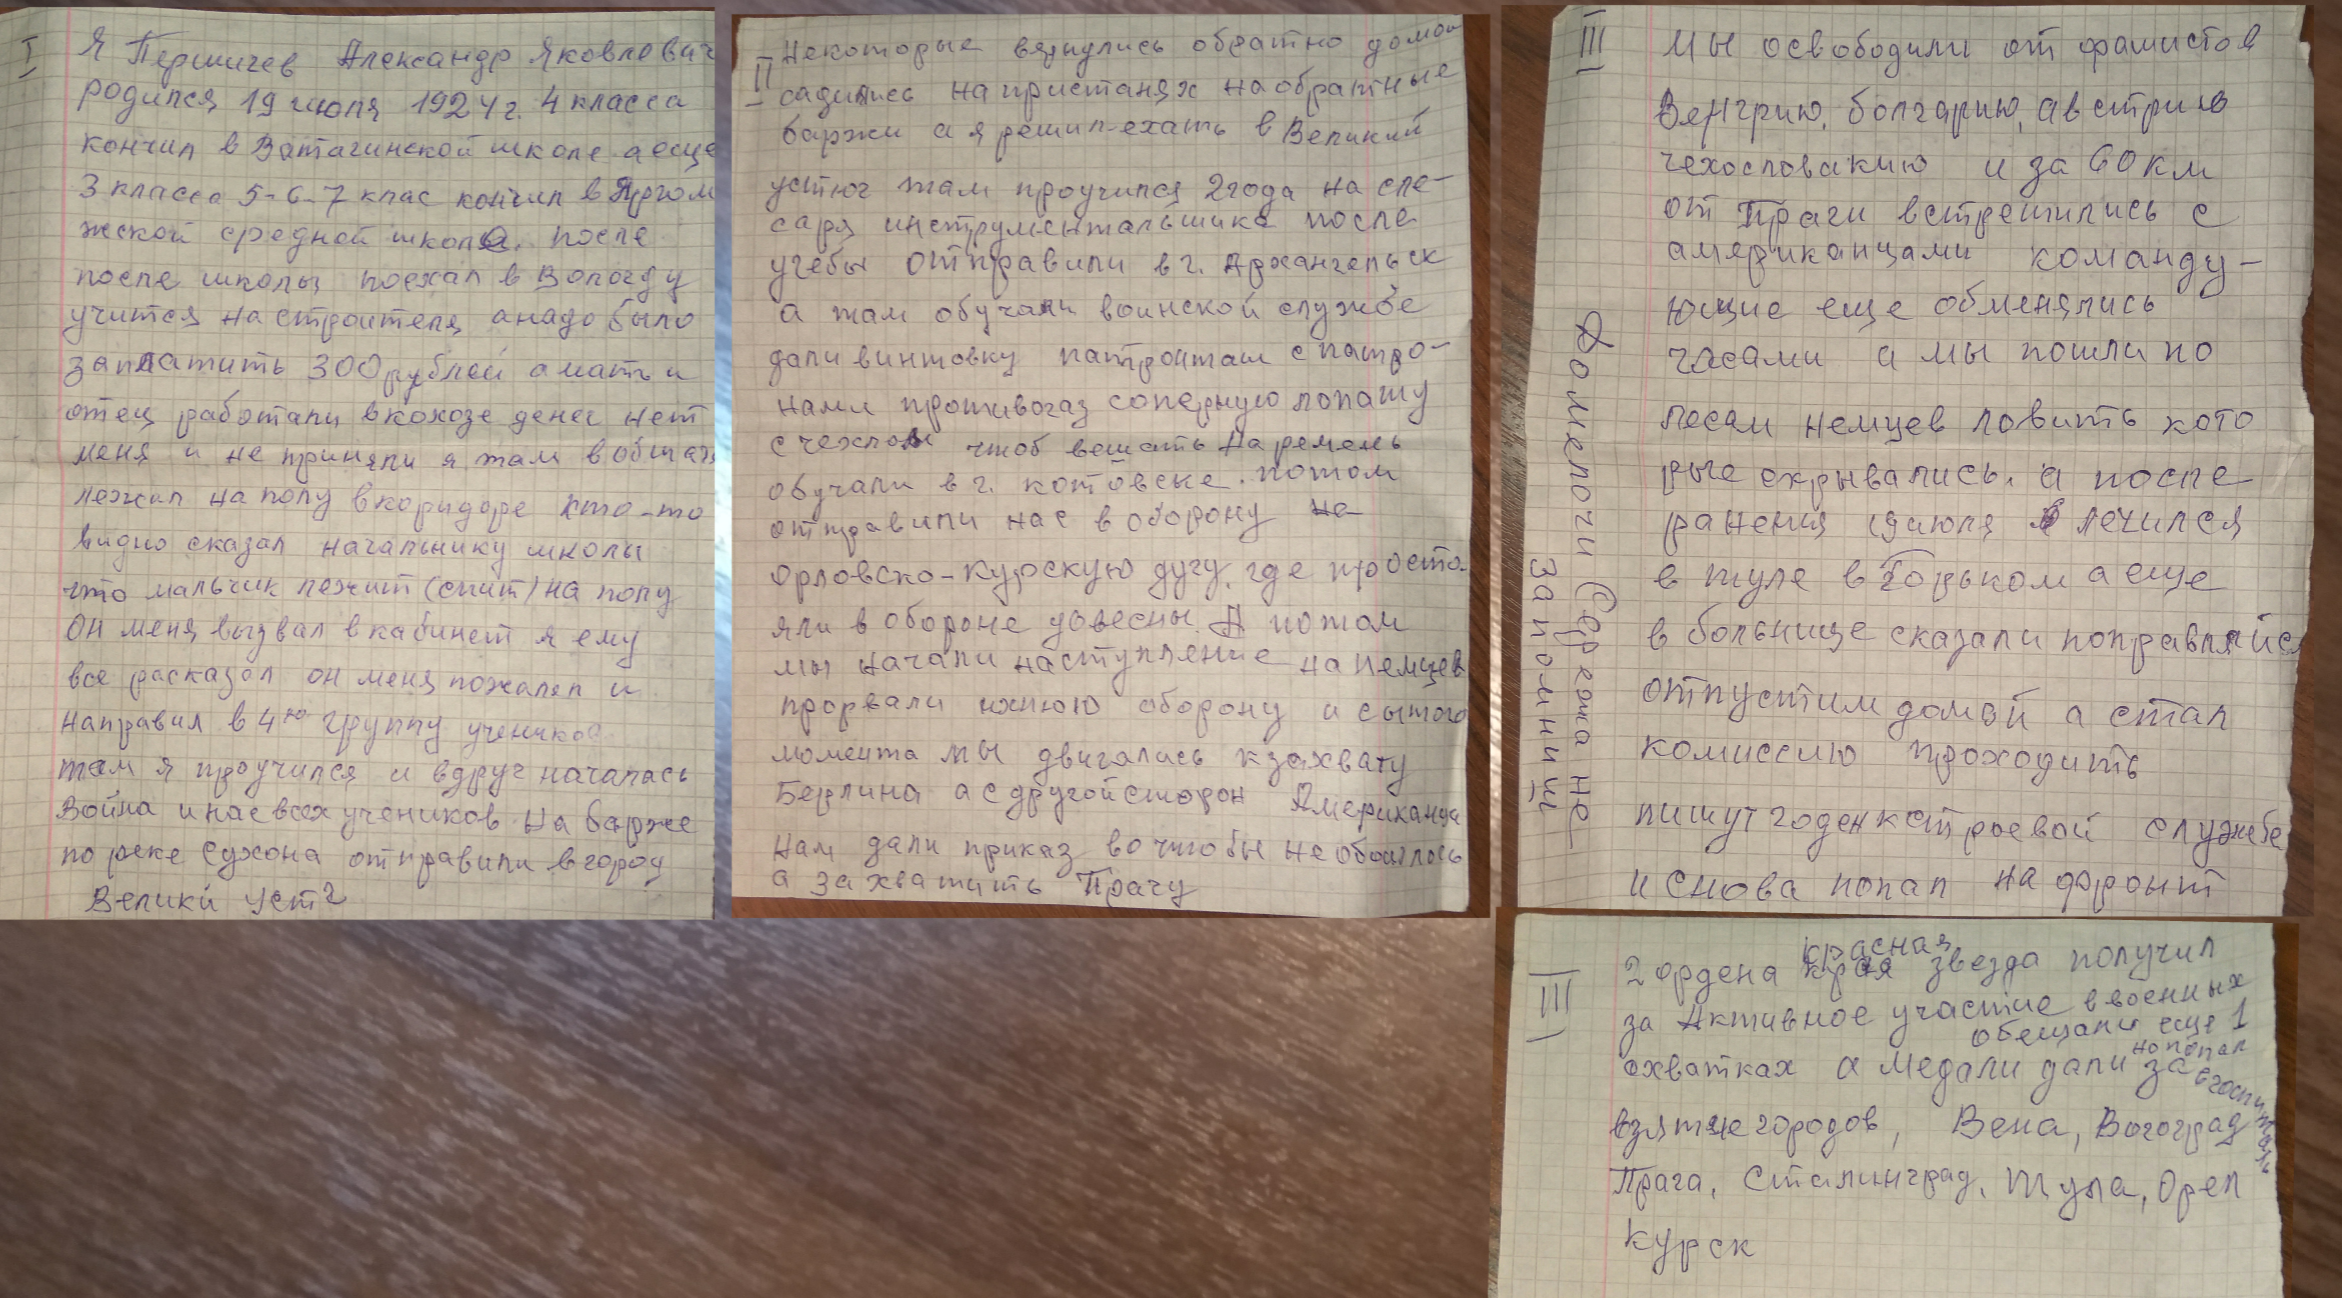 I
Я Першичев Александр Яковлевич
родился 19 июля 1924г. 4 класса
кончил в Ватагинской школе а еще
3 класса 5-6-7 клас кончил в Яргом
жской средной школе. после
после школы поехал в Вологду
учится на строителя а надо было
заплатить 300 рублей а мать и
отец работали в кохозе денег нет
меня и не приняли я там в общаге
лежал на полу в коридоре кто-то
видно сказал начальнику школы
что мальчик лежит (спит) на полу
он меня вызвал в кабинет я ему
все расказал он меня пожалел и
направил в 4ю группу учеников
там я проучился и вдруг началась
Война и нас всех учеников на барже
по реке Сухона отправили в город
Велики Устг
II
Некоторые вернулись обратно домой
садились на пристанях на обратные
баржи а я решил ехать в Великий
устюг там проучился 2 года на сле-
саря инструментальшика после
учебы отправили в г. Архангельск
а там обучали воинской службе
дали винтовку патронташ с патро-
нами противогаз саперную лопату
с чехлом чтоб вешать на ремень
обучали в г. котовске. потом
отправили нас в оборону на
орловско-курскую дугу, где просто-
яли в обороне довесны. А потом
мы начали наступление на немцев
прорвали ихнюю оборону и сытого
момента мы двигались к захвату
Берлина а с другой сторон Американцы
Нам дали приказ во чтобы не обошлось
а захватить Прагу
III
Мы освободили от фашистов
Венгрию, болгарию, австрию
чехословакию и за 60 км
от Праги встретились с
американцами команду-
ющие еще обменялись
часами а мы пошли по
лесам немцев ловить кото
рые скрывались. а после
ранения 19 июля лечился
в туле в Горьком а еще
в больнице сказали поправляйся
отпустим домой а стал
комиссию проходить
пишут годен к строевой службе
и снова попал на фронт
Домелочи Сережа не
запомниш
III
красная
2 ордена края звезда получил
за Активное участие в военных
обещали еще 1
схватках а медали дали за
но попал
в госпиталь
взятие городов, Вена, Вогоград
Прага, Сталинград, Тула, Орел
Курск